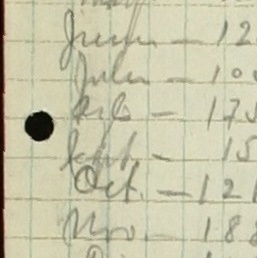 June — 12
July — 10
Aug — 175
Sept. - 15
Oct. — 121
Nov. — 188